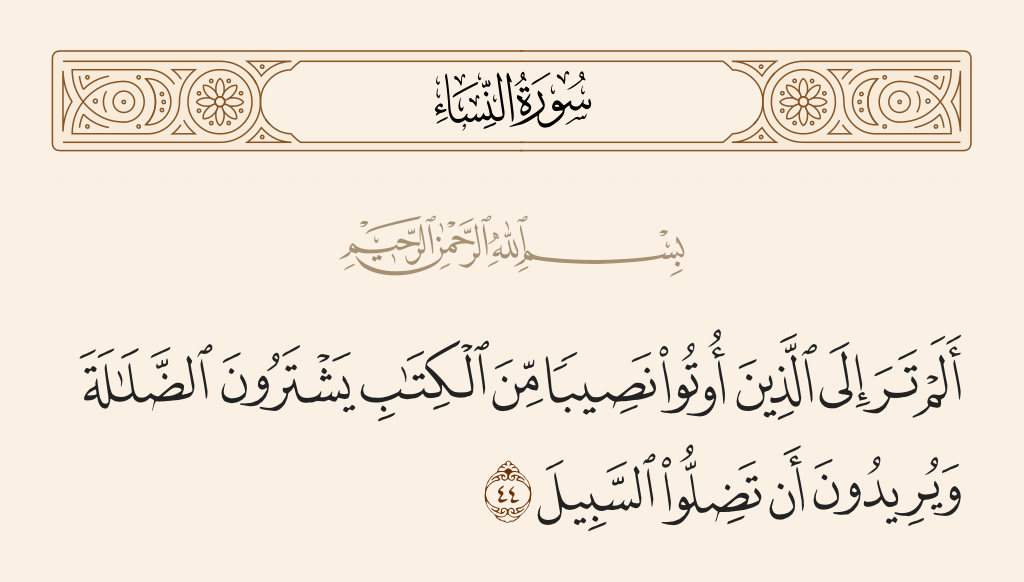 سُورَةُ النِّسَاءِ
بِسْمِ ٱللَّهِ ٱلرَّحْمَٰنِ ٱلرَّحِيمِ
أَلَمْ تَرَ إِلَى ٱلَّذِينَ أُوتُوا۟ نَصِيبًا مِّنَ ٱلْكِتَٰبِ يَشْتَرُونَ ٱلضَّلَٰلَةَ
وَيُرِيدُونَ أَن تَضِلُّوا۟ ٱلسَّبِيلَ ٤٤